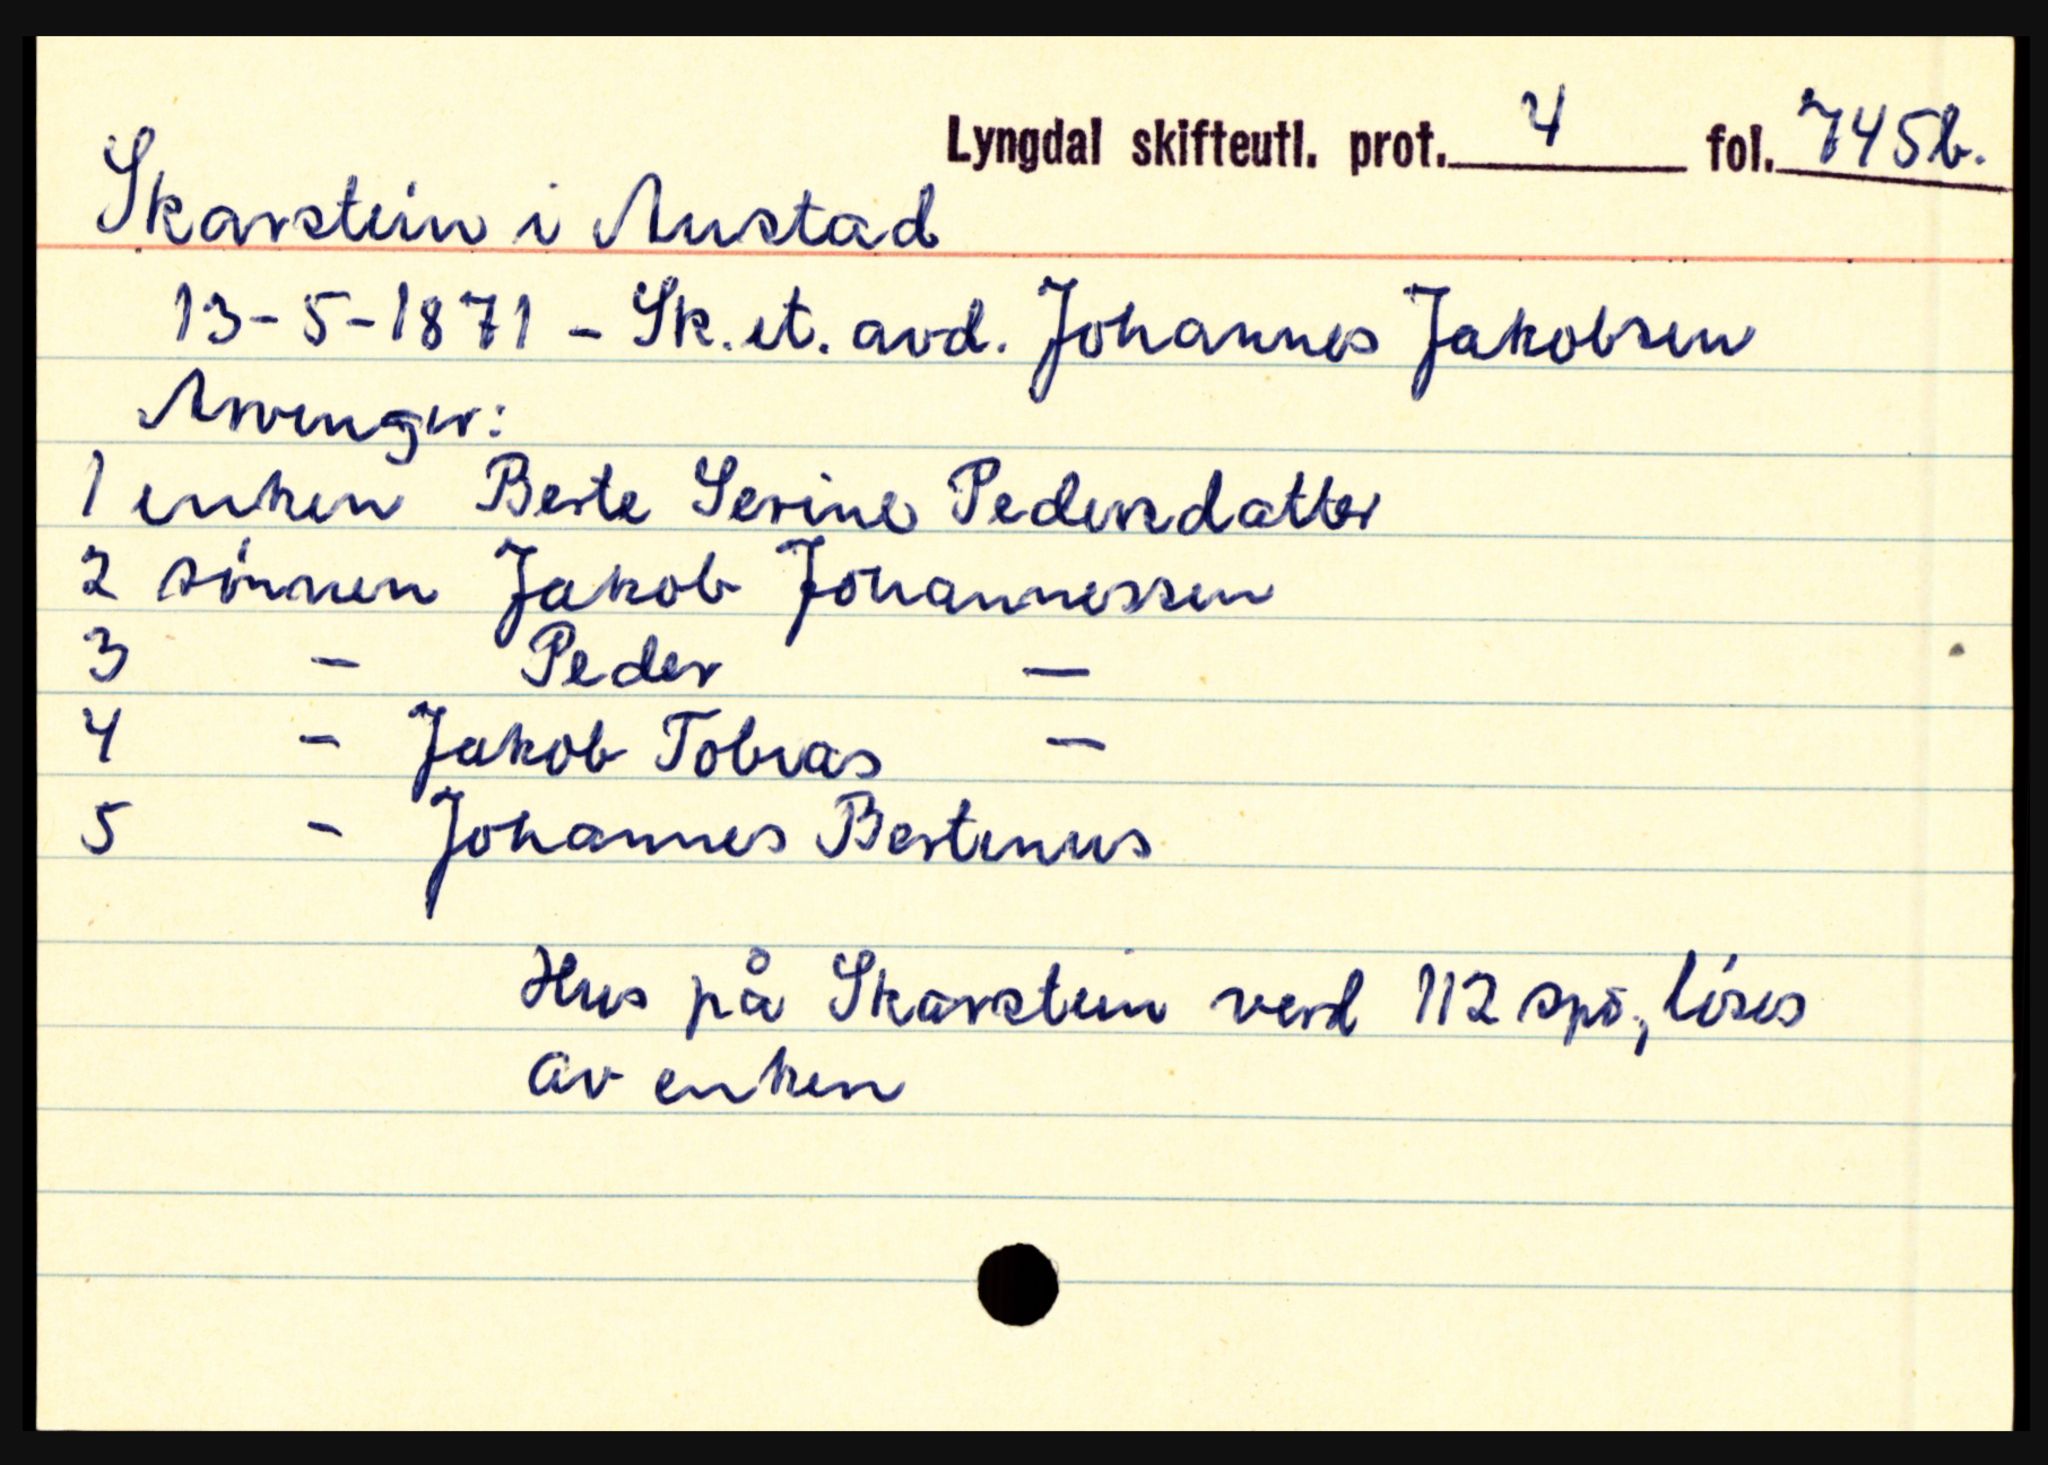 Lyngdal skifteutl. prot. 4 fol. 745b.
Skarstein i Austad
13-5-1871 - Sk. et. avd. Johannes Jakobsen
Arvinger:
1 enken Berte Serine Pedersdatter
2 sónnen Jakob Johannessen
3 - Peder -
4 - Jakob Tobias -
5 - Johannes Bertinus
Hus på Skarstein verd 112 spd., lóses
av enken